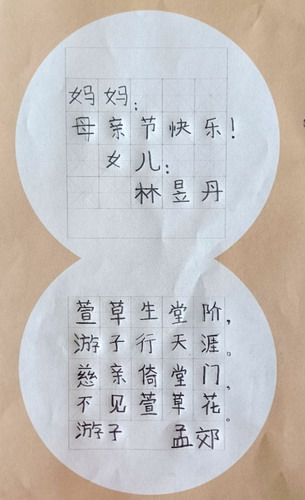 妈妈：
母亲节快乐！
女儿：
林昱丹
萱草生堂阶，
游子行天涯。
慈亲倚堂门，
不见萱草花。
游子 孟郊